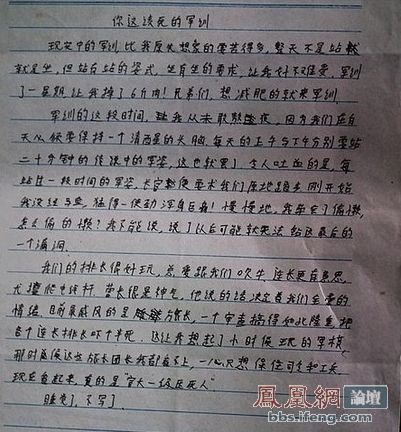 你这该死的军训
现实中的军训比我原先想象的要苦得多,整天不是站
就是坐,但站有站的姿式,坐有坐的要求,让我好不难受,军训
了一星期,让我掉了6斤肉!兄弟们,想减肥的就来军训
军训的这段时间,我从未敢熬夜,因为我们在白
天必须要保持一个清醒的头脑,每天的上午与下午分别要站
二十分钟的传说中的军姿,这也就罢了,令人吐血的是,每
站住一段时间的军姿,长官都要要求我们原地踏步,刚开始
我没经与些,猛得一使劲浑身巨痛!慢慢地,我学会了偷懒,
怎么偷的懒?我不能说,说了以后可能就来法给这最后的
一个漏洞.
我们的排长很好玩,总爱跟我们吹牛,连长更有意思,
尤擅爬电线杆.营长很是神气,他说的话决定着我们全营的
情绪,目前最威风的是旅长,一个官直搞得如此隆重,把
各个连长排长吓个半死,这让我想起了小时候玩的军棋,
那时总像这些旅长团长我都看不上,一心只想保住司令和工兵,
现在看起来,真的是"官大一级压死人"
睡觉了,不写了.
鳳凰網 論壇
bbs.ifeng.com